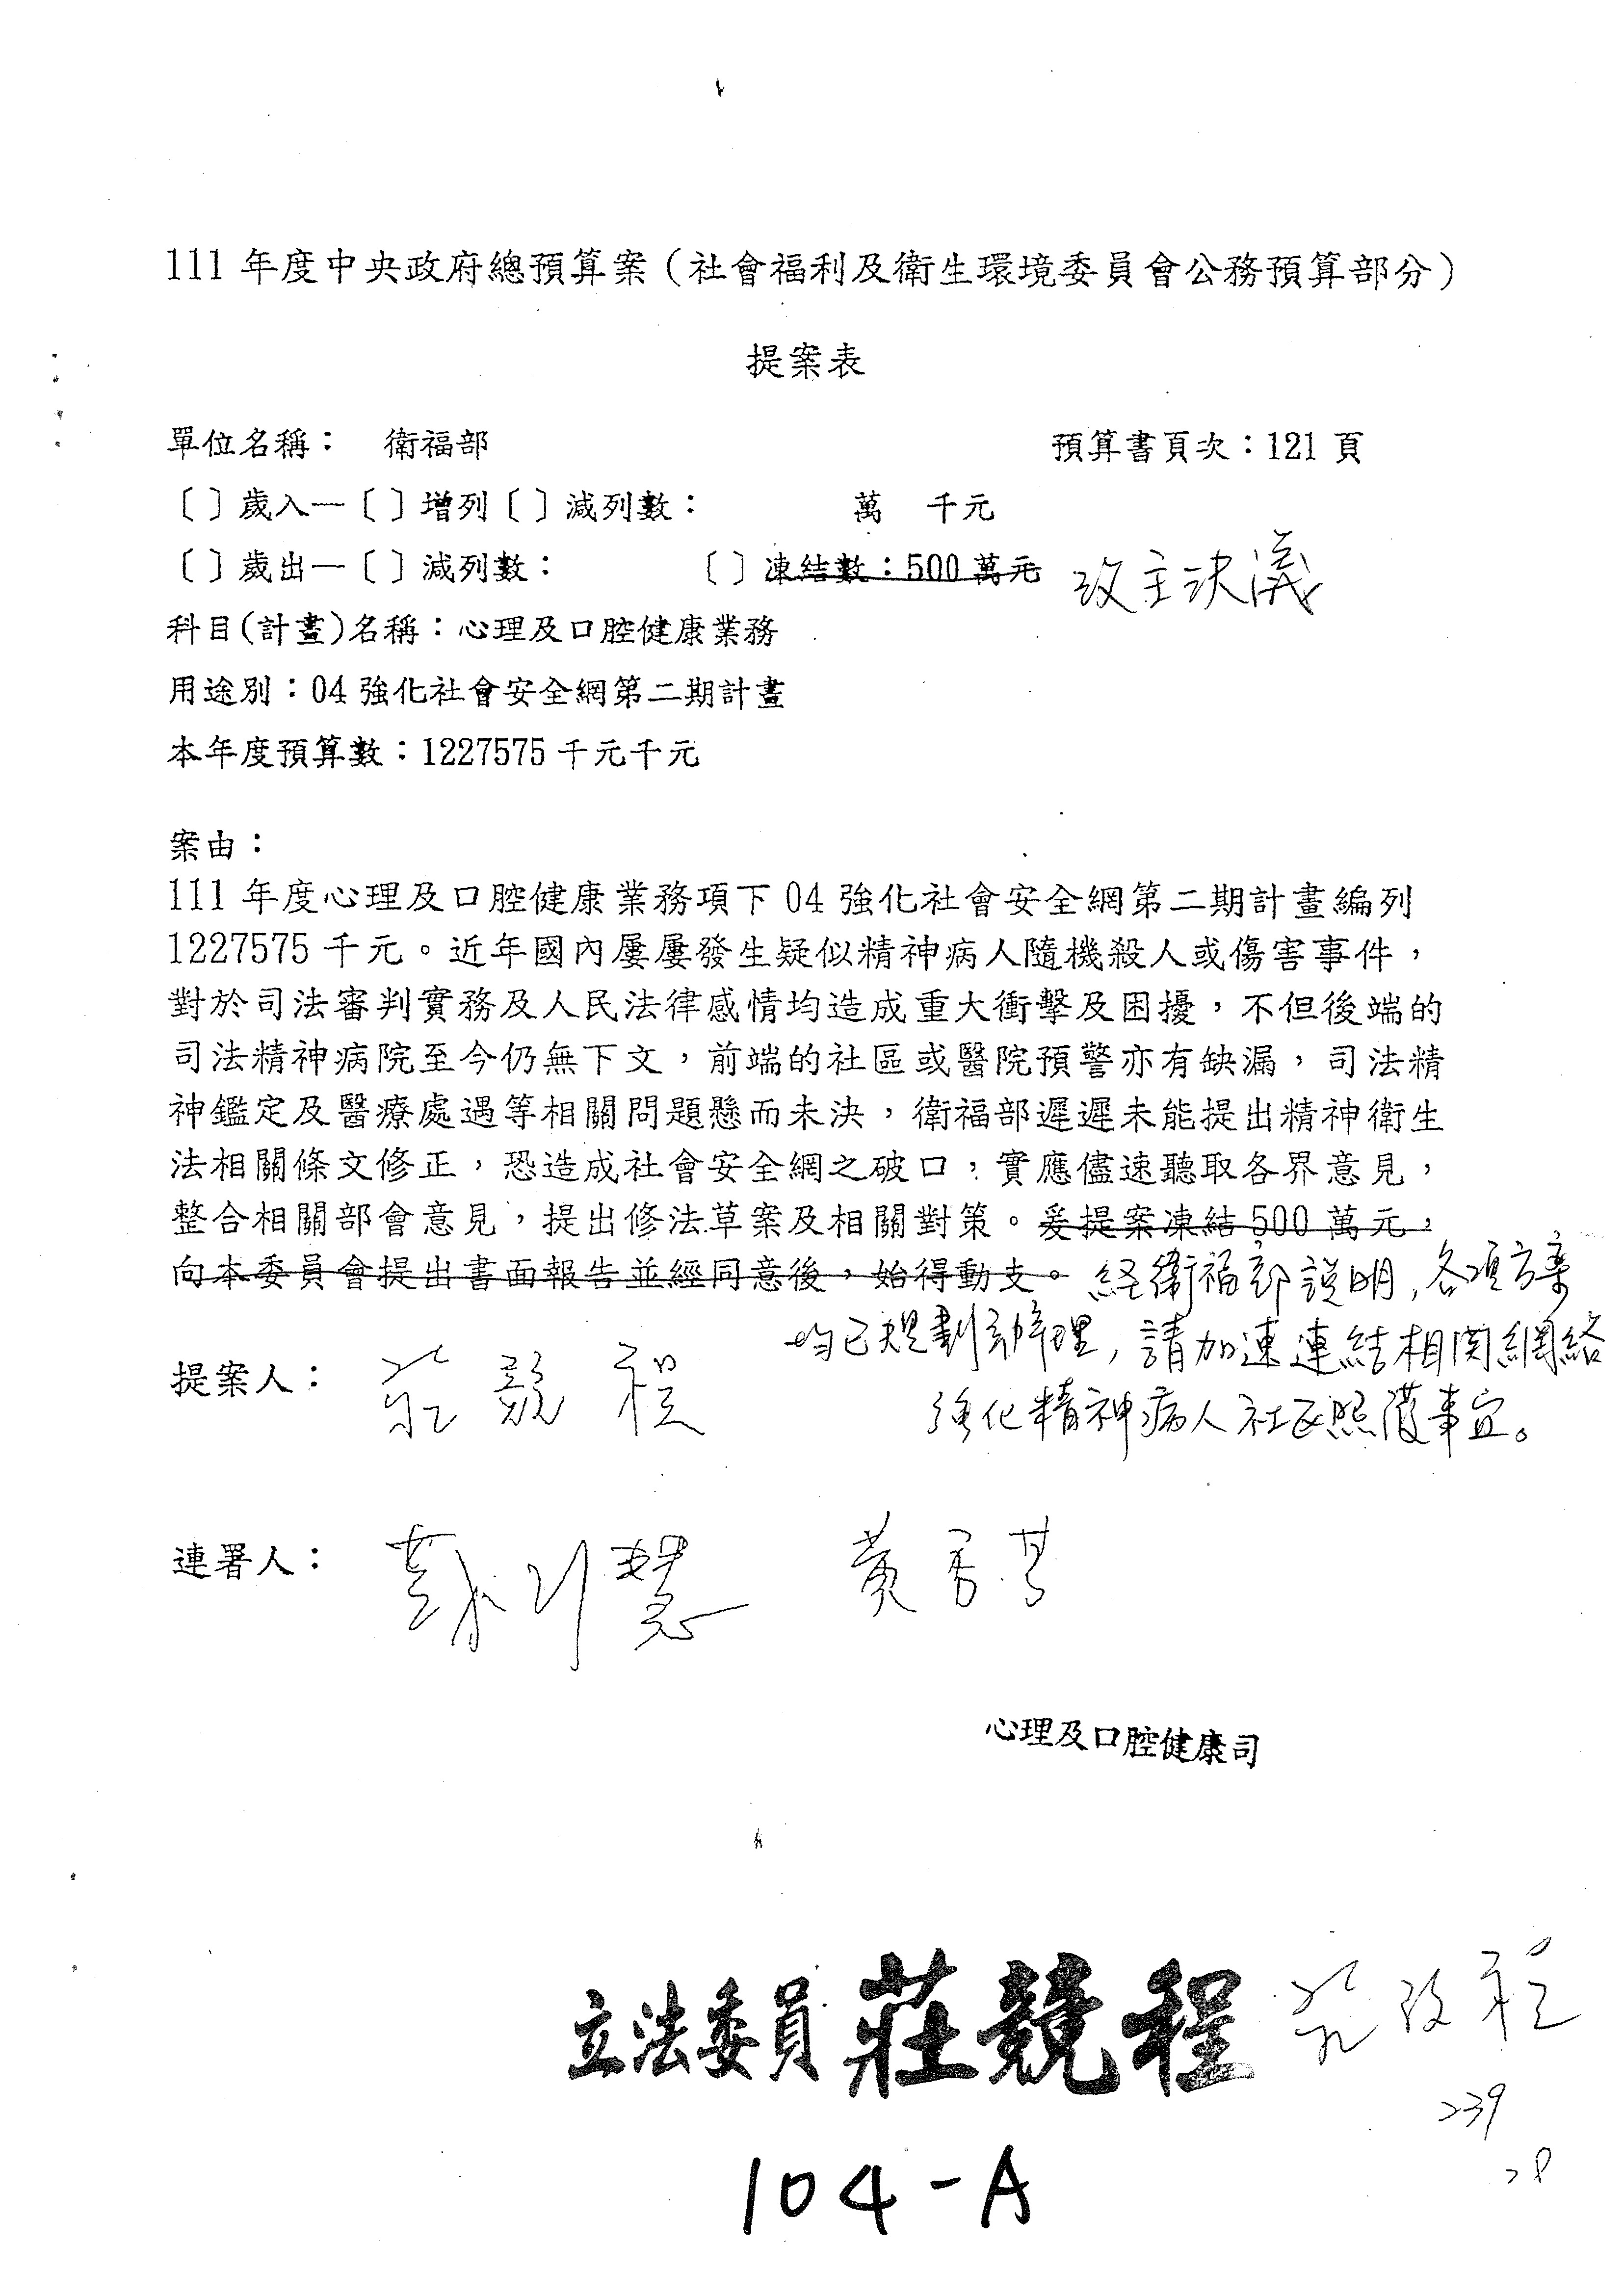 111 年度中央政府總預算案（社會福利及衛生環境委員會公務預算部分）
提案表
單位名稱： 衛福部 預算書頁次：121 頁
〔 〕歲入—〔 〕增列〔 〕減列數： 萬 千元
〔 〕歲出—〔 〕減列數： 〔 〕凍結數：500 萬元 改主決議
科目(計畫)名稱：心理及口腔健康業務
用途別：04 強化社會安全網第二期計畫
本年度預算數：1227575 千元千元
案由：
111 年度心理及口腔健康業務項下 04 強化社會安全網第二期計畫編列
1227575 千元。近年國內屢屢發生疑似精神病人隨機殺人或傷害事件，
對於司法審判實務及人民法律感情均造成重大衝擊及困擾，不但後端的
司法精神病院至今仍無下文，前端的社區或醫院預警亦有缺漏，司法精
神鑑定及醫療處遇等相關問題懸而未決，衛福部遲遲未能提出精神衛生
法相關條文修正，恐造成社會安全網之破口，實應儘速聽取各界意見，
整合相關部會意見，提出修法草案及相關對策。爰提案凍結 500 萬元，
向本委員會提出書面報告並經同意後，始得動支。經衛福部說明，各項方案
均已規劃辦理，請加速連結相関網絡
強化精神病人社区照護事宜。
提案人： 莊競程
連署人： 黃秀芳
心理及口腔健康司
立法委員 莊競程
239
28
104-A